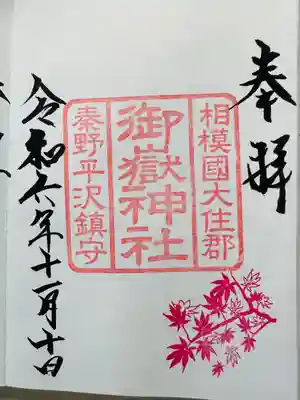 奉拝
相模國大住郡
御嶽神社
秦野平沢鎮守
令和六年十一月十日